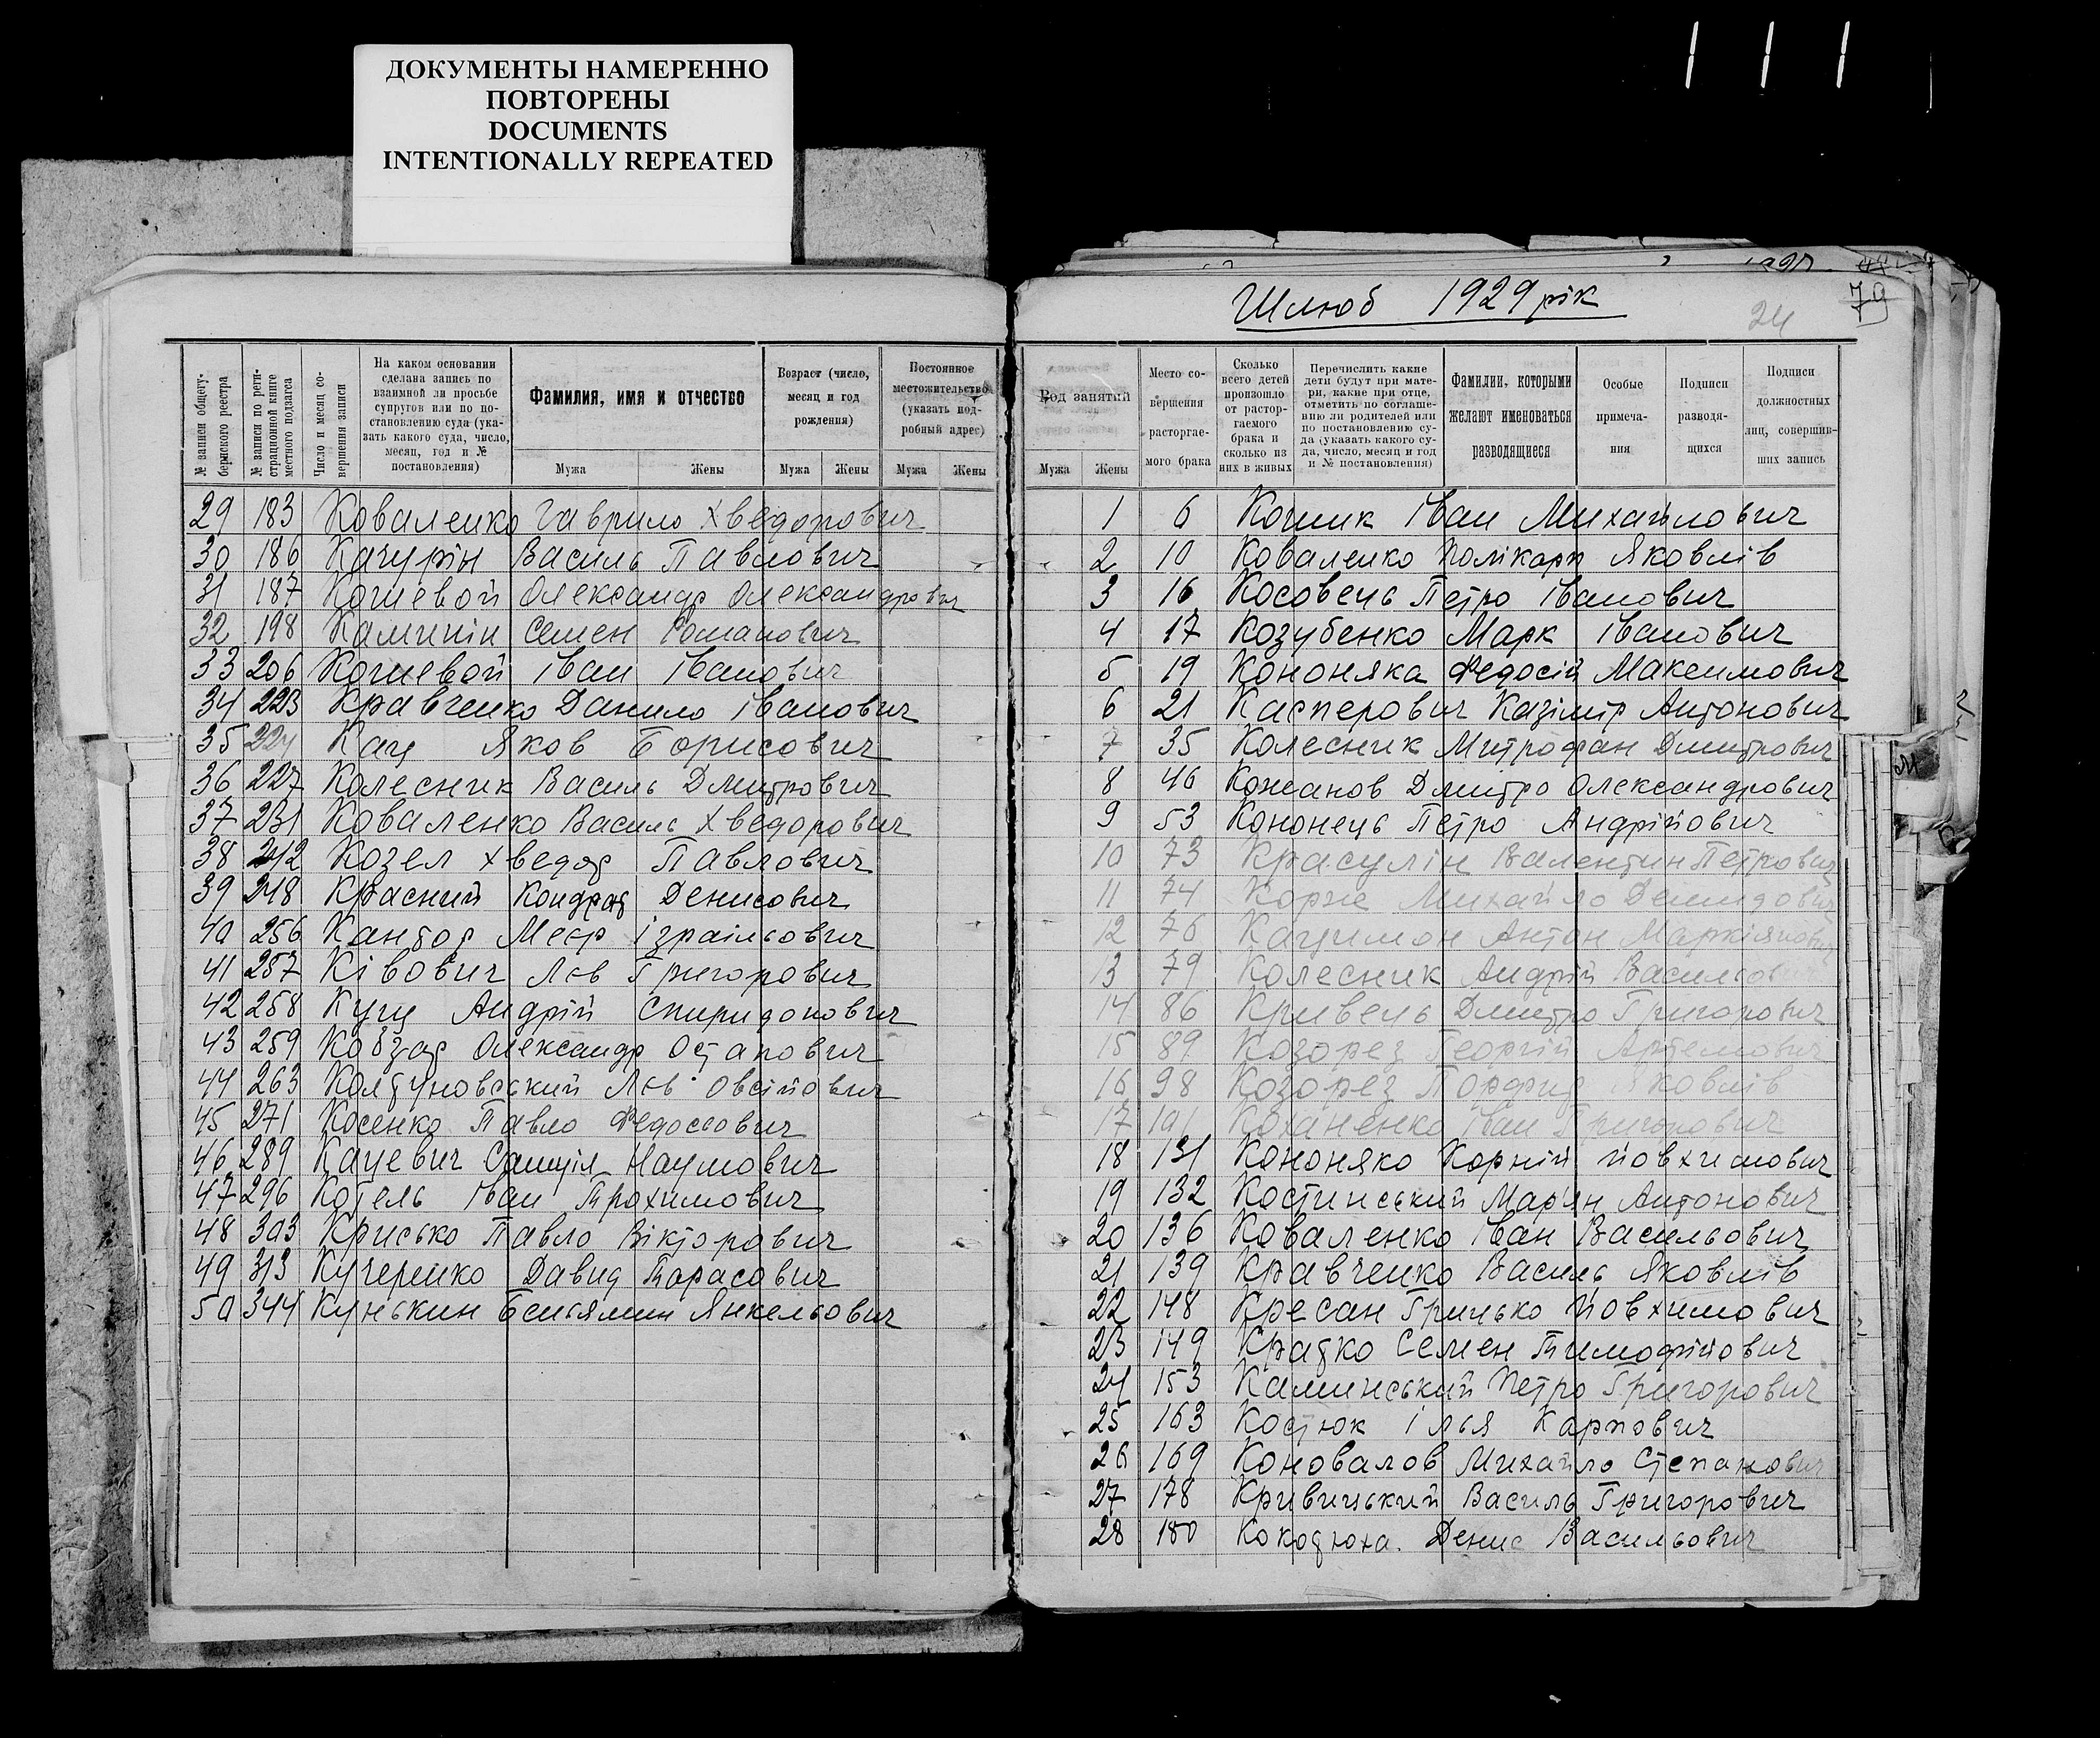 ДОКУМЕНТЫ НАМЕРЕННО
ПОВТОРЕНЫ
DOCUMENTS
INTENTIONALLY REPEATED
№ записи общегу-
бернского реестра
№ записи по реги-
страционной книге
местного подзагса
Число и месяц со-
вершения записи
На каком основании
сделана запись по
взаимной ли просьбе
супругов или по по-
становлению суда (ука-
зать какого суда, число,
месяц, год и №
постановления)
Фамилия, имя и отчество
Мужа Жены
Возраст (число,
месяц и год
рождения)
Мужа Жены
Постоянное
местожительство
(указать под-
робный адрес)
Мужа Жены
29 183 Коваленко Гаврило Хведорович
30 186 Качурін Василь Павлович
31 187 Кошевой Олександр Олександрович
32 198 Каминін Семен Романович
33 206 Кошевой Іван Іванович
34 223 Кравченко Данило Іванович
35 224 Кац Яков Борисович
36 227 Колесник Василь Дмитрович
37 231 Коваленко Василь Хведорович
38 242 Козел Хведор Павлович
39 248 Красний Кондрат Денисович
40 256 Кантор Меєр Ізраільович
41 257 Ківович Лєв Григорович
42 258 Куць Андрій Спиридонович
43 259 Кобзар Олександр Остапович
44 263 Колтуновський Лєв Овсійович
45 271 Косенко Павло Федосович
46 289 Кацевич Самуіл Наумович
47 296 Котель Іван Трохимович
48 303 Крисько Павло Вікторович
49 313 Кучеренко Давид Тарасович
50 344 Кунькин Беньямин Янкельович
Шлюб 1929 рік
24
79
Род занятий
Мужа Жены
Место со-
вершения
расторгае-
мого брака
Сколько
всего детей
произошло
от растор-
гаемого
брака и
сколько из
них в живых
Перечислить какие
дети будут при мате-
ри, какие при отце,
отметить по соглаше-
нию ли родителей или
по постановлению су-
да (указать какого су-
да, число, месяц и год
и № постановления)
Фамилии, которыми
желают именоваться
разводящиеся
Особые
примеча-
ния
Подписи
разводя-
щихся
Подписи
должностных
лиц, совершив-
ших запись
1 6 Кошик Іван Михайлович
2 10 Коваленко Полікарп Яковлів
3 16 Косовець Петро Іванович
4 17 Козубенко Марк Іванович
5 19 Кононяка Федосій Максимович
6 21 Касперович Казімір Антонович
7 35 Колесник Митрофан Дмитрович
8 46 Кожанов Дмитро Олександрович
9 53 Кононець Петро Андрійович
10 73 Красулін Валентин Петрович
11 74 Корже Михайло Демидович
12 76 Кацимон Антон
13 79 Колесник Андрій Васильович
14 86 Кривець Дмитро Григорович
15 89 Козорез Георгій Артемович
16 98 Козорез Порфир Яковлів
17 101 Коханенко Іван Григорович
18 131 Кононяко Корній Йовхимович
19 132 Костинський Мар'ян Антонович
20 136 Коваленко Іван Васильович
21 139 Кравченко Василь Яковлів
22 148 Кресан Грицько Йовхимович
23 149 Кратко Семен Тимофійович
24 153 Каминський Петро Григорович
25 163 Костюк Ілья Карпович
26 169 Коновалов Михайло Степанович
27 178 Кривицький Василь Григорович
28 180 Кокотюха. Денис Васильович